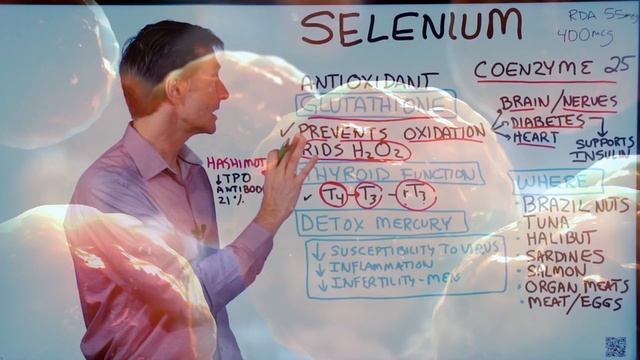 SELENIUM
RDA 55mg
400mcg
ANTIOXIDANT
GLUTATHIONE
PREVENTS OXIDATION
RIDS H2O2
HASHIMOT
↓TPO
ANTIBOD
21%
THYROID FUNCTION
T4 → T3 - rT3
DETOX MERCURY
↓ SUSCEPTIBILITY TO VIRUS
↓ INFLAMMATION
↓ INFERTILITY-MEN
COENZYME 25
BRAIN/NERVES
DIABETES
HEART
SUPPORTS
INSULIN
WHERE
• BRAZIL NUTS
• TUNA
• HALIBUT
• SARDINES
• SALMON
• ORGAN MEATS
• MEAT/EGGS